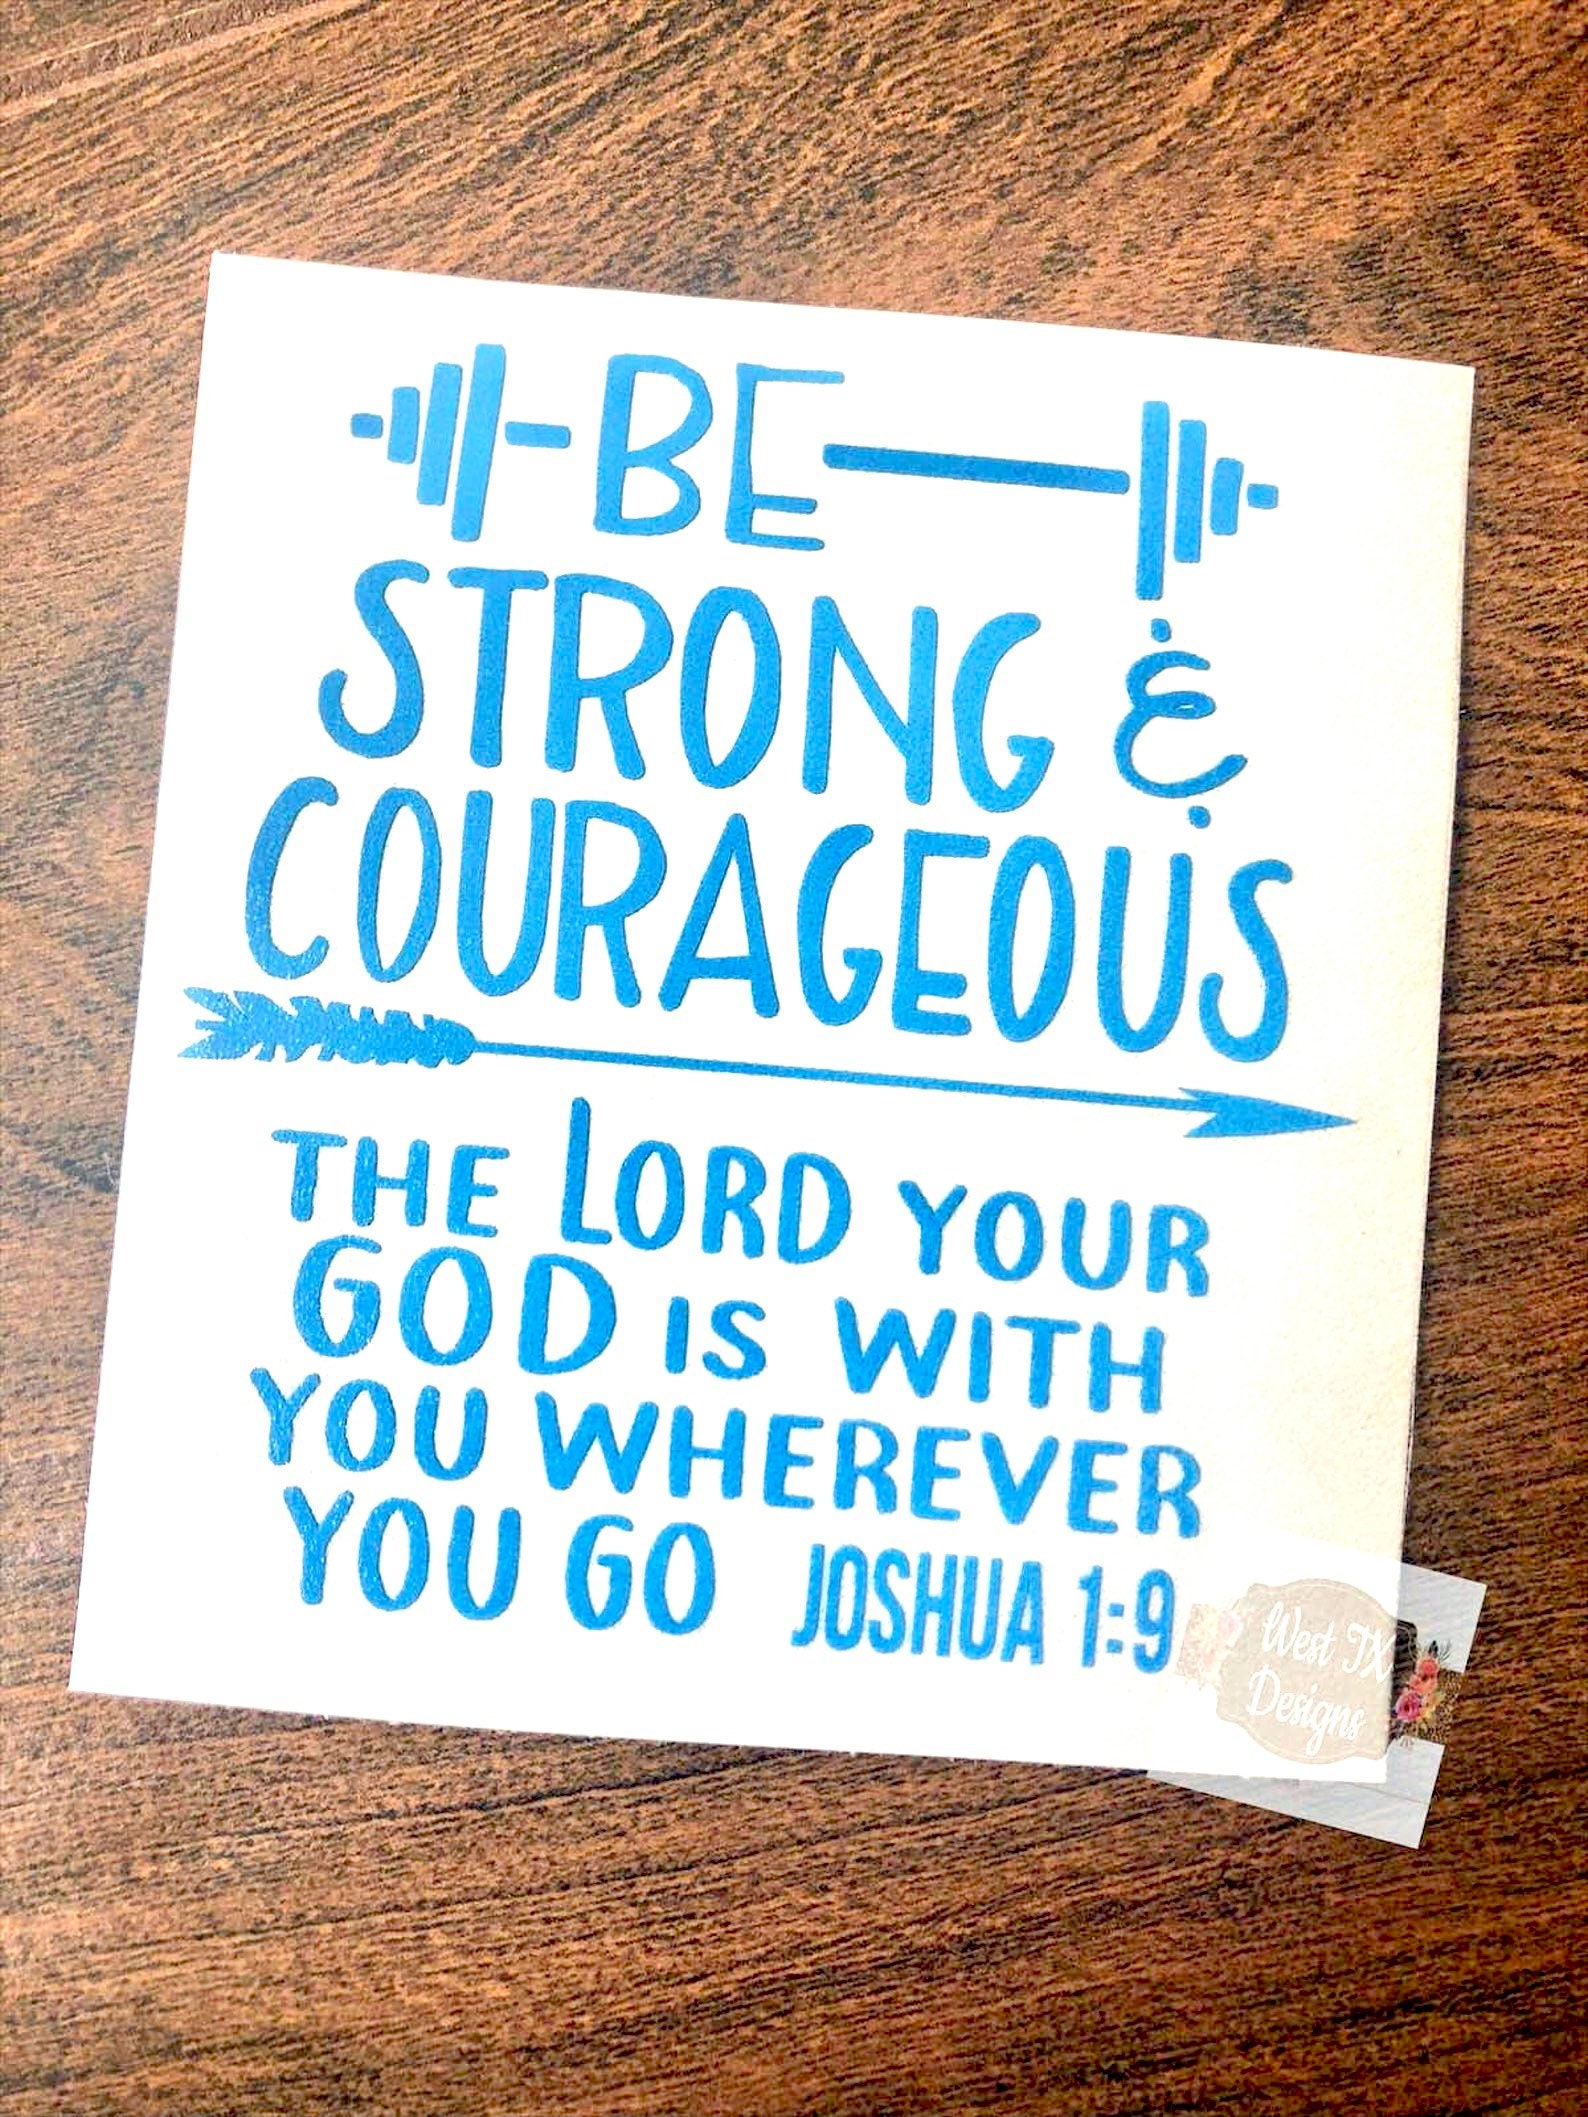 BE
STRONG &
COURAGEOUS
THE LORD YOUR
GOD IS WITH
YOU WHEREVER
YOU GO JOSHUA 1:9
West TX
Designs